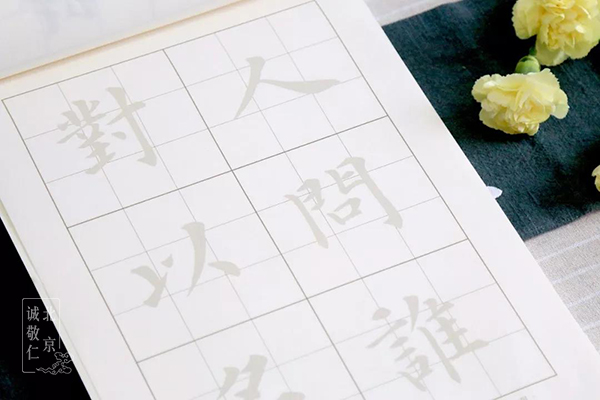 人問誰
對以
北京
诚敬仁